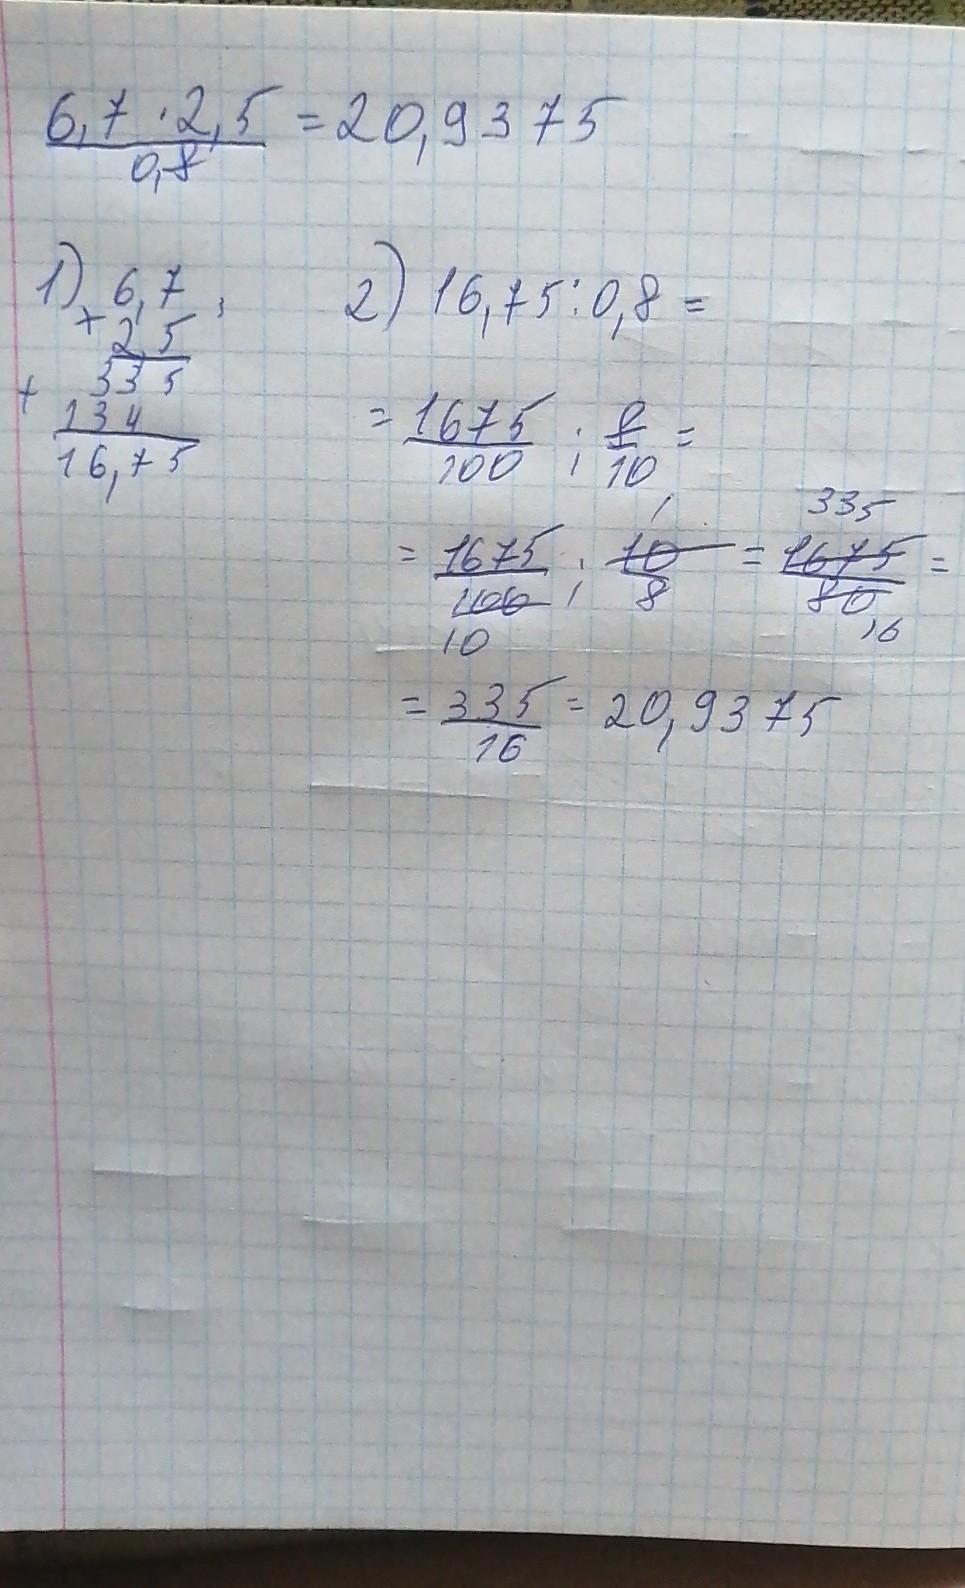 6,7 · 2,5 = 20,9375
0,8
1) 6,7
+ 2,5
335
+ 134
16,75
2) 16,75 : 0,8 =
= 1675/100 : 8/10 =
= 1675/100 : 10/8 = 1675/80 =
1
10
335
16
= 335/16 = 20,9375